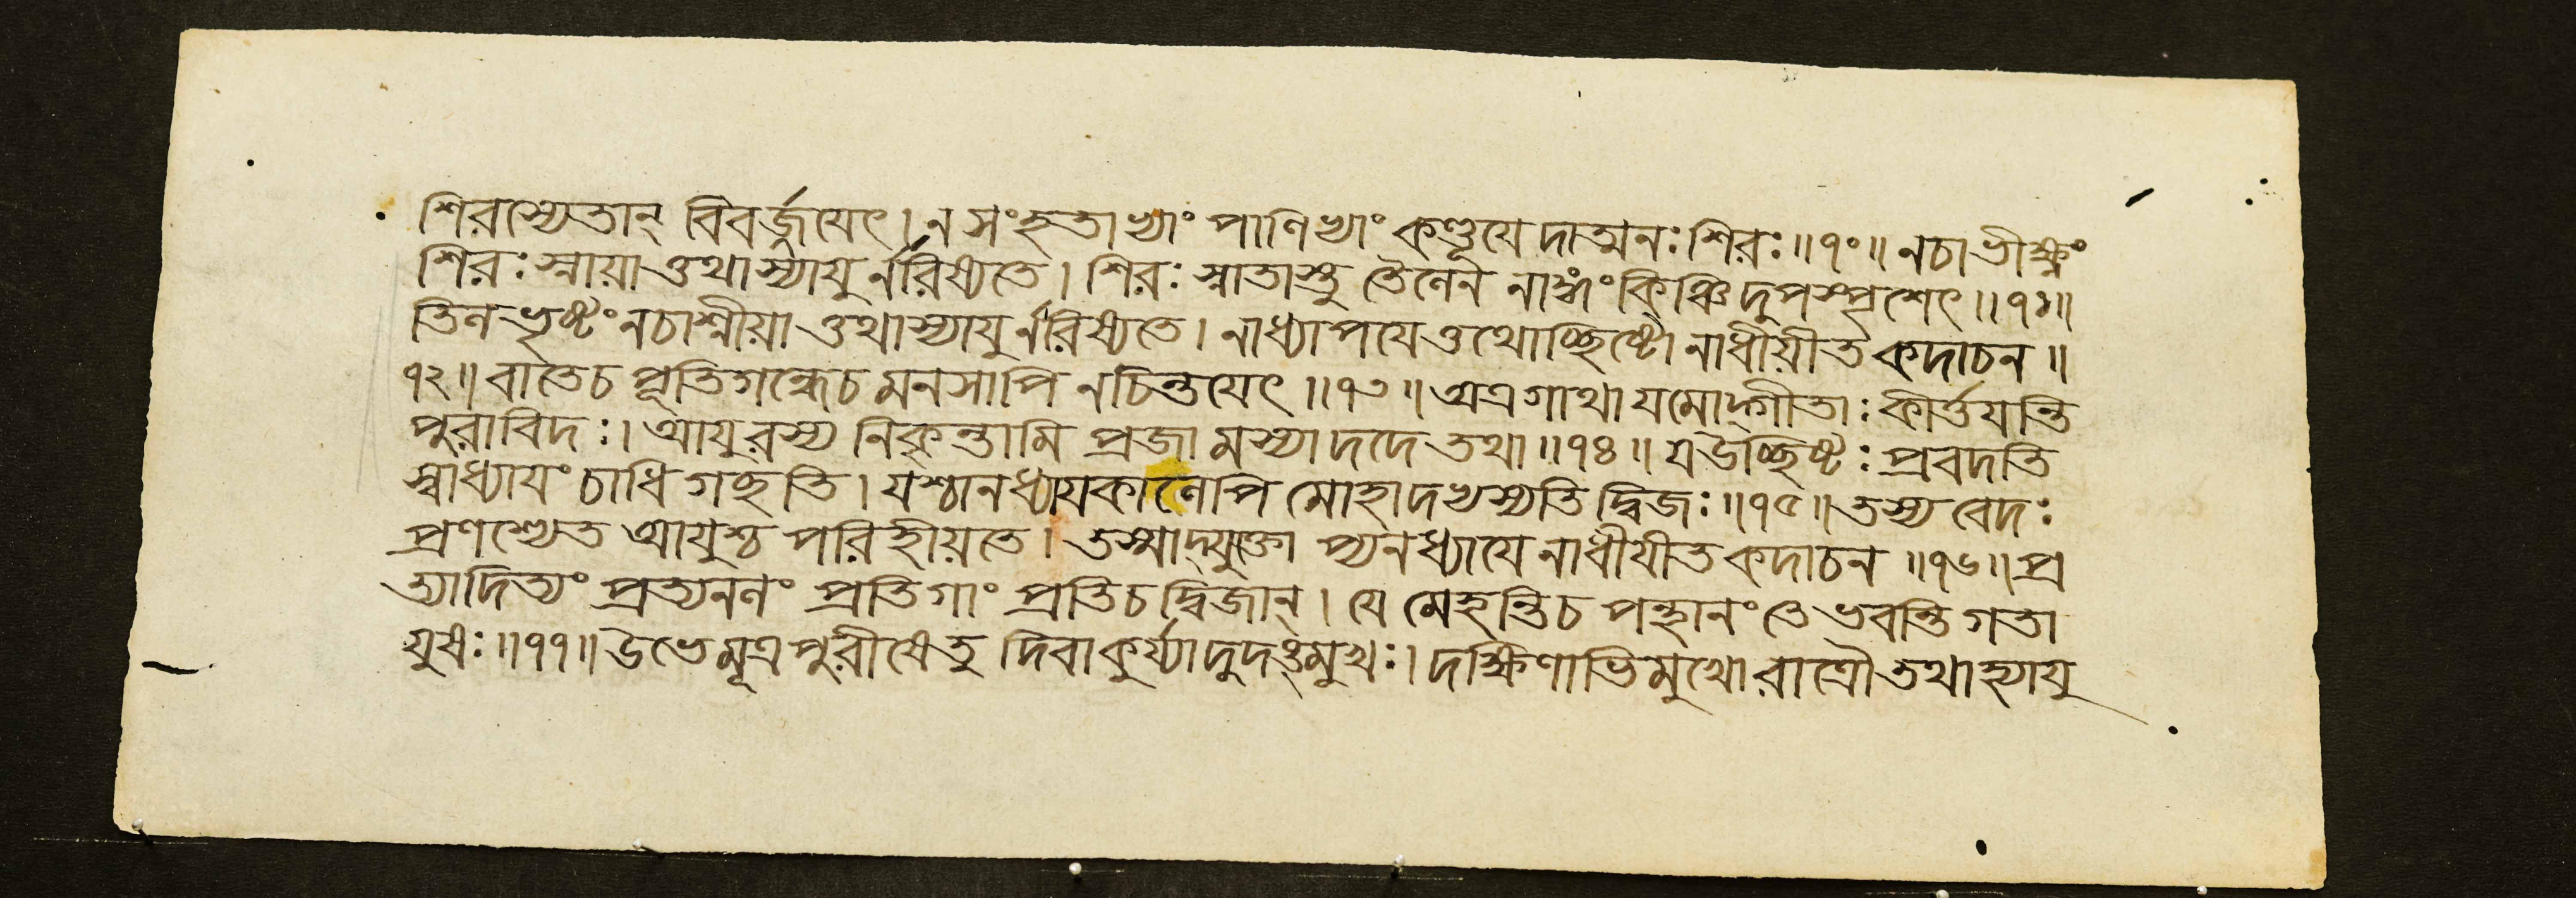 শিরস্যেতান্ বিবর্জ্জয়েৎ। ন সংহতাভ্যাং পাণিভ্যাং কণ্ডূয়েদাত্মনঃ শিরঃ॥৭০॥ নচাভীক্ষ্ণং
শিরঃ স্নায়াত্তথাস্যায়ুর্নরিষ্যতে। শিরঃ স্নাতাস্তু তৈলেন নাঙ্গং কিঞ্চিদুপস্পৃশেৎ॥৭১॥
তিলভৃষ্টং নচাশ্নীয়াত্তথাস্যায়ুর্নরিষ্যতে। নাধ্যাপয়েত্তথোচ্ছিষ্টো নাধীয়ীত কদাচন॥
৭২॥ বাতেচ পূতিগন্ধেচ মনসাপি নচিন্তয়েৎ॥৭৩॥ অত্র গাথা যমোদ্গীতাঃ কীর্ত্তয়ন্তি
পুরাবিদঃ। আয়ুরস্য নিকৃন্তামি প্রজামস্যাদদে তথা॥৭৪॥ য উচ্ছিষ্টঃ প্রবদতি
স্বাধ্যায়ং চাধিগচ্ছতি। যশ্চানধ্যায়কালেপি মোহাদভ্যস্যতি দ্বিজঃ॥৭৫॥ তস্য বেদঃ
প্রণশ্যেত আয়ুশ্চ পরিহীয়তে। তস্মাদ্যুক্তো প্যনধ্যায়ে নাধীয়ীত কদাচন॥৭৬॥ প্র
ত্যাদিত্যং প্রত্যনলং প্রতিগাং প্রতিচ দ্বিজান্। যে মেহন্তিচ পন্থানং তে ভবন্তি গতা
য়ুষঃ॥৭৭॥ উভে মূত্রপুরীষেতু দিবাকুর্য্যাদুদঙ্মুখঃ। দক্ষিণাভিমুখো রাত্রৌ তথাহ্যায়ু